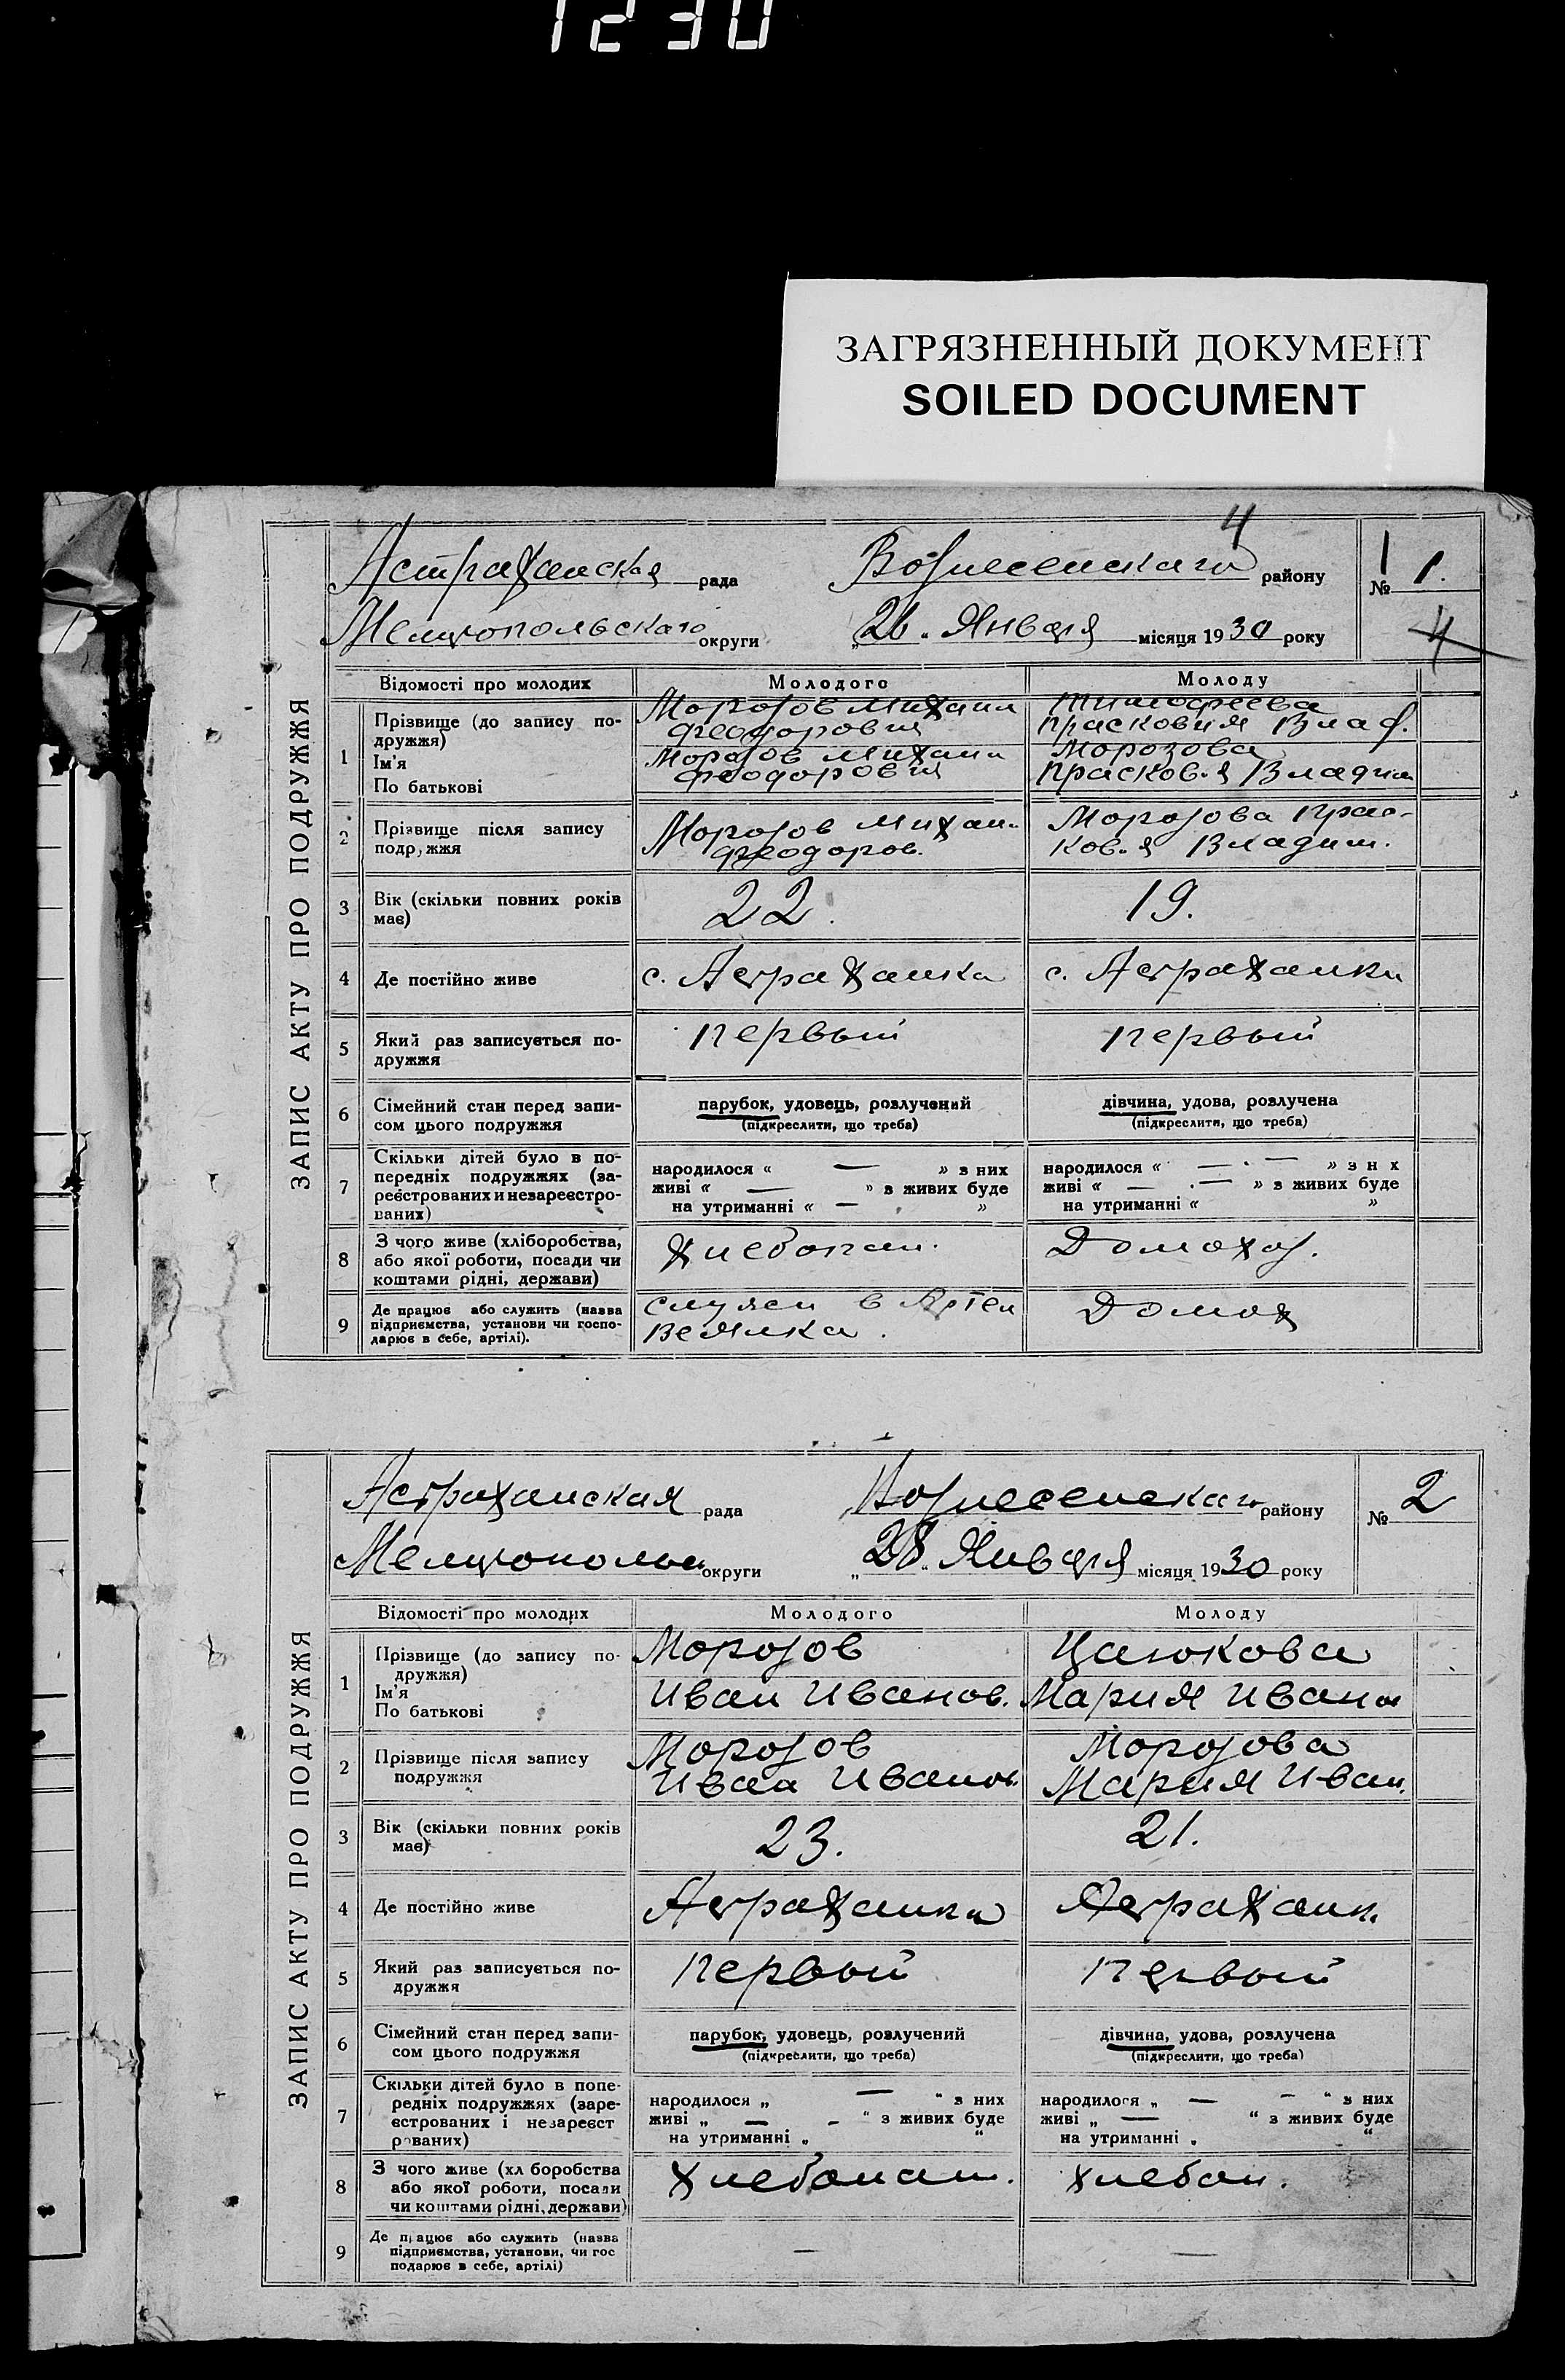 1230
ЗАГРЯЗНЕННЫЙ ДОКУМЕНТ
SOILED DOCUMENT
4
ЗАПИС АКТУ ПРО ПОДРУЖЖЯ
Астраханская рада Вознесенскаго району № 1.
Мелитопольскаго округи „26“ Января місяця 1930 року
4
Відомості про молодих Молодого Молоду
1 Прізвище (до запису подружжя) Ім'я По батькові
Морозов Михаил Тимофеева
Феодорович Прасковия Влад.
Морозов Михаил Морозова
Феодорович Прасков.я Владим
2 Прізвище після запису подружжя
Морозов Михаи. Морозова Прас-
Феодоров. ков.я Владим.
3 Вік (скільки повних років має) 22. 19.
4 Де постійно живе с. Астраханка с. Астраханки
5 Який раз записується подружжя первый первый
6 Сімейний стан перед записом цього подружжя парубок, удовець, розлучений дівчина, удова, розлучена
(підкреслити, що треба) (підкреслити, що треба)
7 Скільки дітей було в попередніх подружжях (зареєстрованих и незареєстрованих)
народилося « — » з них народилося « — » з н х
живі « — » з живих буде живі « — » з живих буде
на утриманні « — » на утриманні « »
8 З чого живе (хліборобства, або якої роботи, посади чи коштами рідні, держави) Хлебопаш. Домохоз.
9 Де працює або служить (назва підприємства, установи чи господарює в себе, артілі).
в Артел Домох
ЗАПИС АКТУ ПРО ПОДРУЖЖЯ
Астраханская рада Вознесенскаго району № 2
Мелитопольск округи „28“ Января місяця 1930 року
Відомості про молодих Молодого Молоду
1 Прізвище (до запису подружжя) Ім'я По батькові
Морозов
Иван Иванов. Мария Иванов
2 Прізвище після запису подружжя
Морозов Морозова
Иван Иванов. Мария Иван.
3 Вік (скільки повних років має) 23. 21.
4 Де постійно живе Астраханки Астраханк.
5 Який раз записується подружжя первый первый
6 Сімейний стан перед записом цього подружжя парубок, удовець, розлучений дівчина, удова, розлучена
(підкреслити, що треба) (підкреслити, що треба)
7 Скільки дітей було в попередніх подружжях (зареєстрованих і незареєст рованих)
народилося „ — “ з них народилося „ — “ з них
живі „ — “ з живих буде живі „ — “ з живих буде
на утриманні „ “ на утриманні „ “
8 З чого живе (хл боробства або якої роботи, посади чи коштами рідні, держави) Хлебопаш. хлебоп.
9 Де працює або служить (назва підприємства, установи, чи гос подарює в себе, артілі) — —